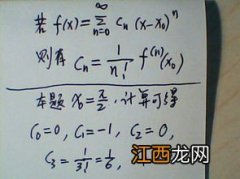 若 f(x) = ∑_{n=0}^{∞} C_n (x-x_0)^n
则有 C_n = \frac{1}{n!} f^{(n)}(x_0)
本题 x_0 = \frac{π}{2}. 计算可得
C_0=0, C_1=-1, C_2=0,
C_3 = \frac{1}{3!} = \frac{1}{6},
江西龙网